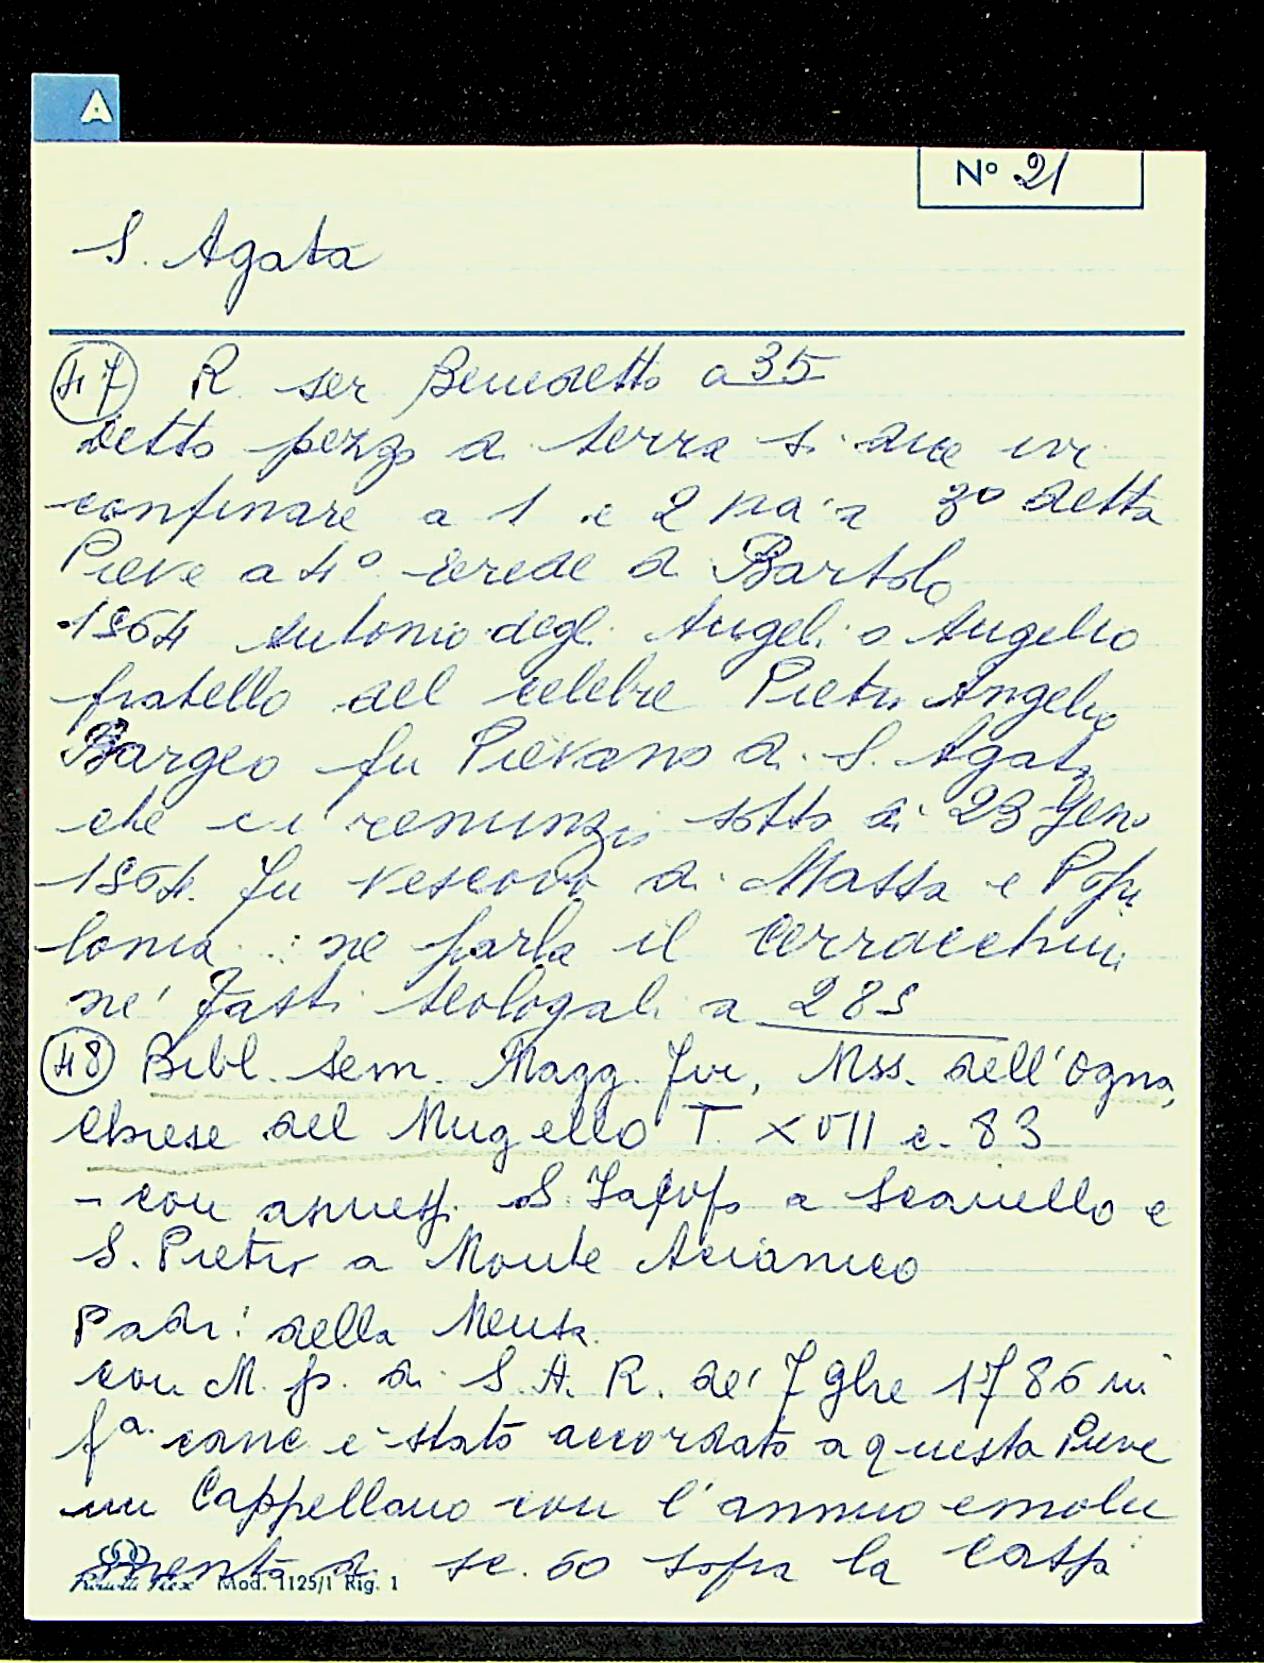 A
N° 21
S. Agata
47 R. ser Benedetto a 35
detto pezzo di terra si dice ivi
confinare a 1 e 2 via a 3° detta
Pieve a 4° erede di Bartolo
1564 Antonio degli Angeli o Angelio
fratello del celebre Pietro Angelio
Bargeo fu Pievano di S. Agata
che ci renunzio sotto di 23 Geno
1564. fu Vescovo di Massa e Popu
lonia : ne parla il Cerracchini
ne' Fasti teologali a 285
48 Bibl. Sem. Magg. Fir, Mss. dell'Ogna,
Chiese del Mugello T. XVII c. 83
- con annessi S. Jacopo a Scanello e
S. Pietro a Monte Accianico
Padri: della Mensa
con M. p. di S. A. R. de' 7 9bre 1786 in
f.a cane è stato accordato a questa Pieve
un Cappellano con l'annuo emolu
mento di sc. 60 sopra la Cassa
Mod. 1125/1 Rig. 1